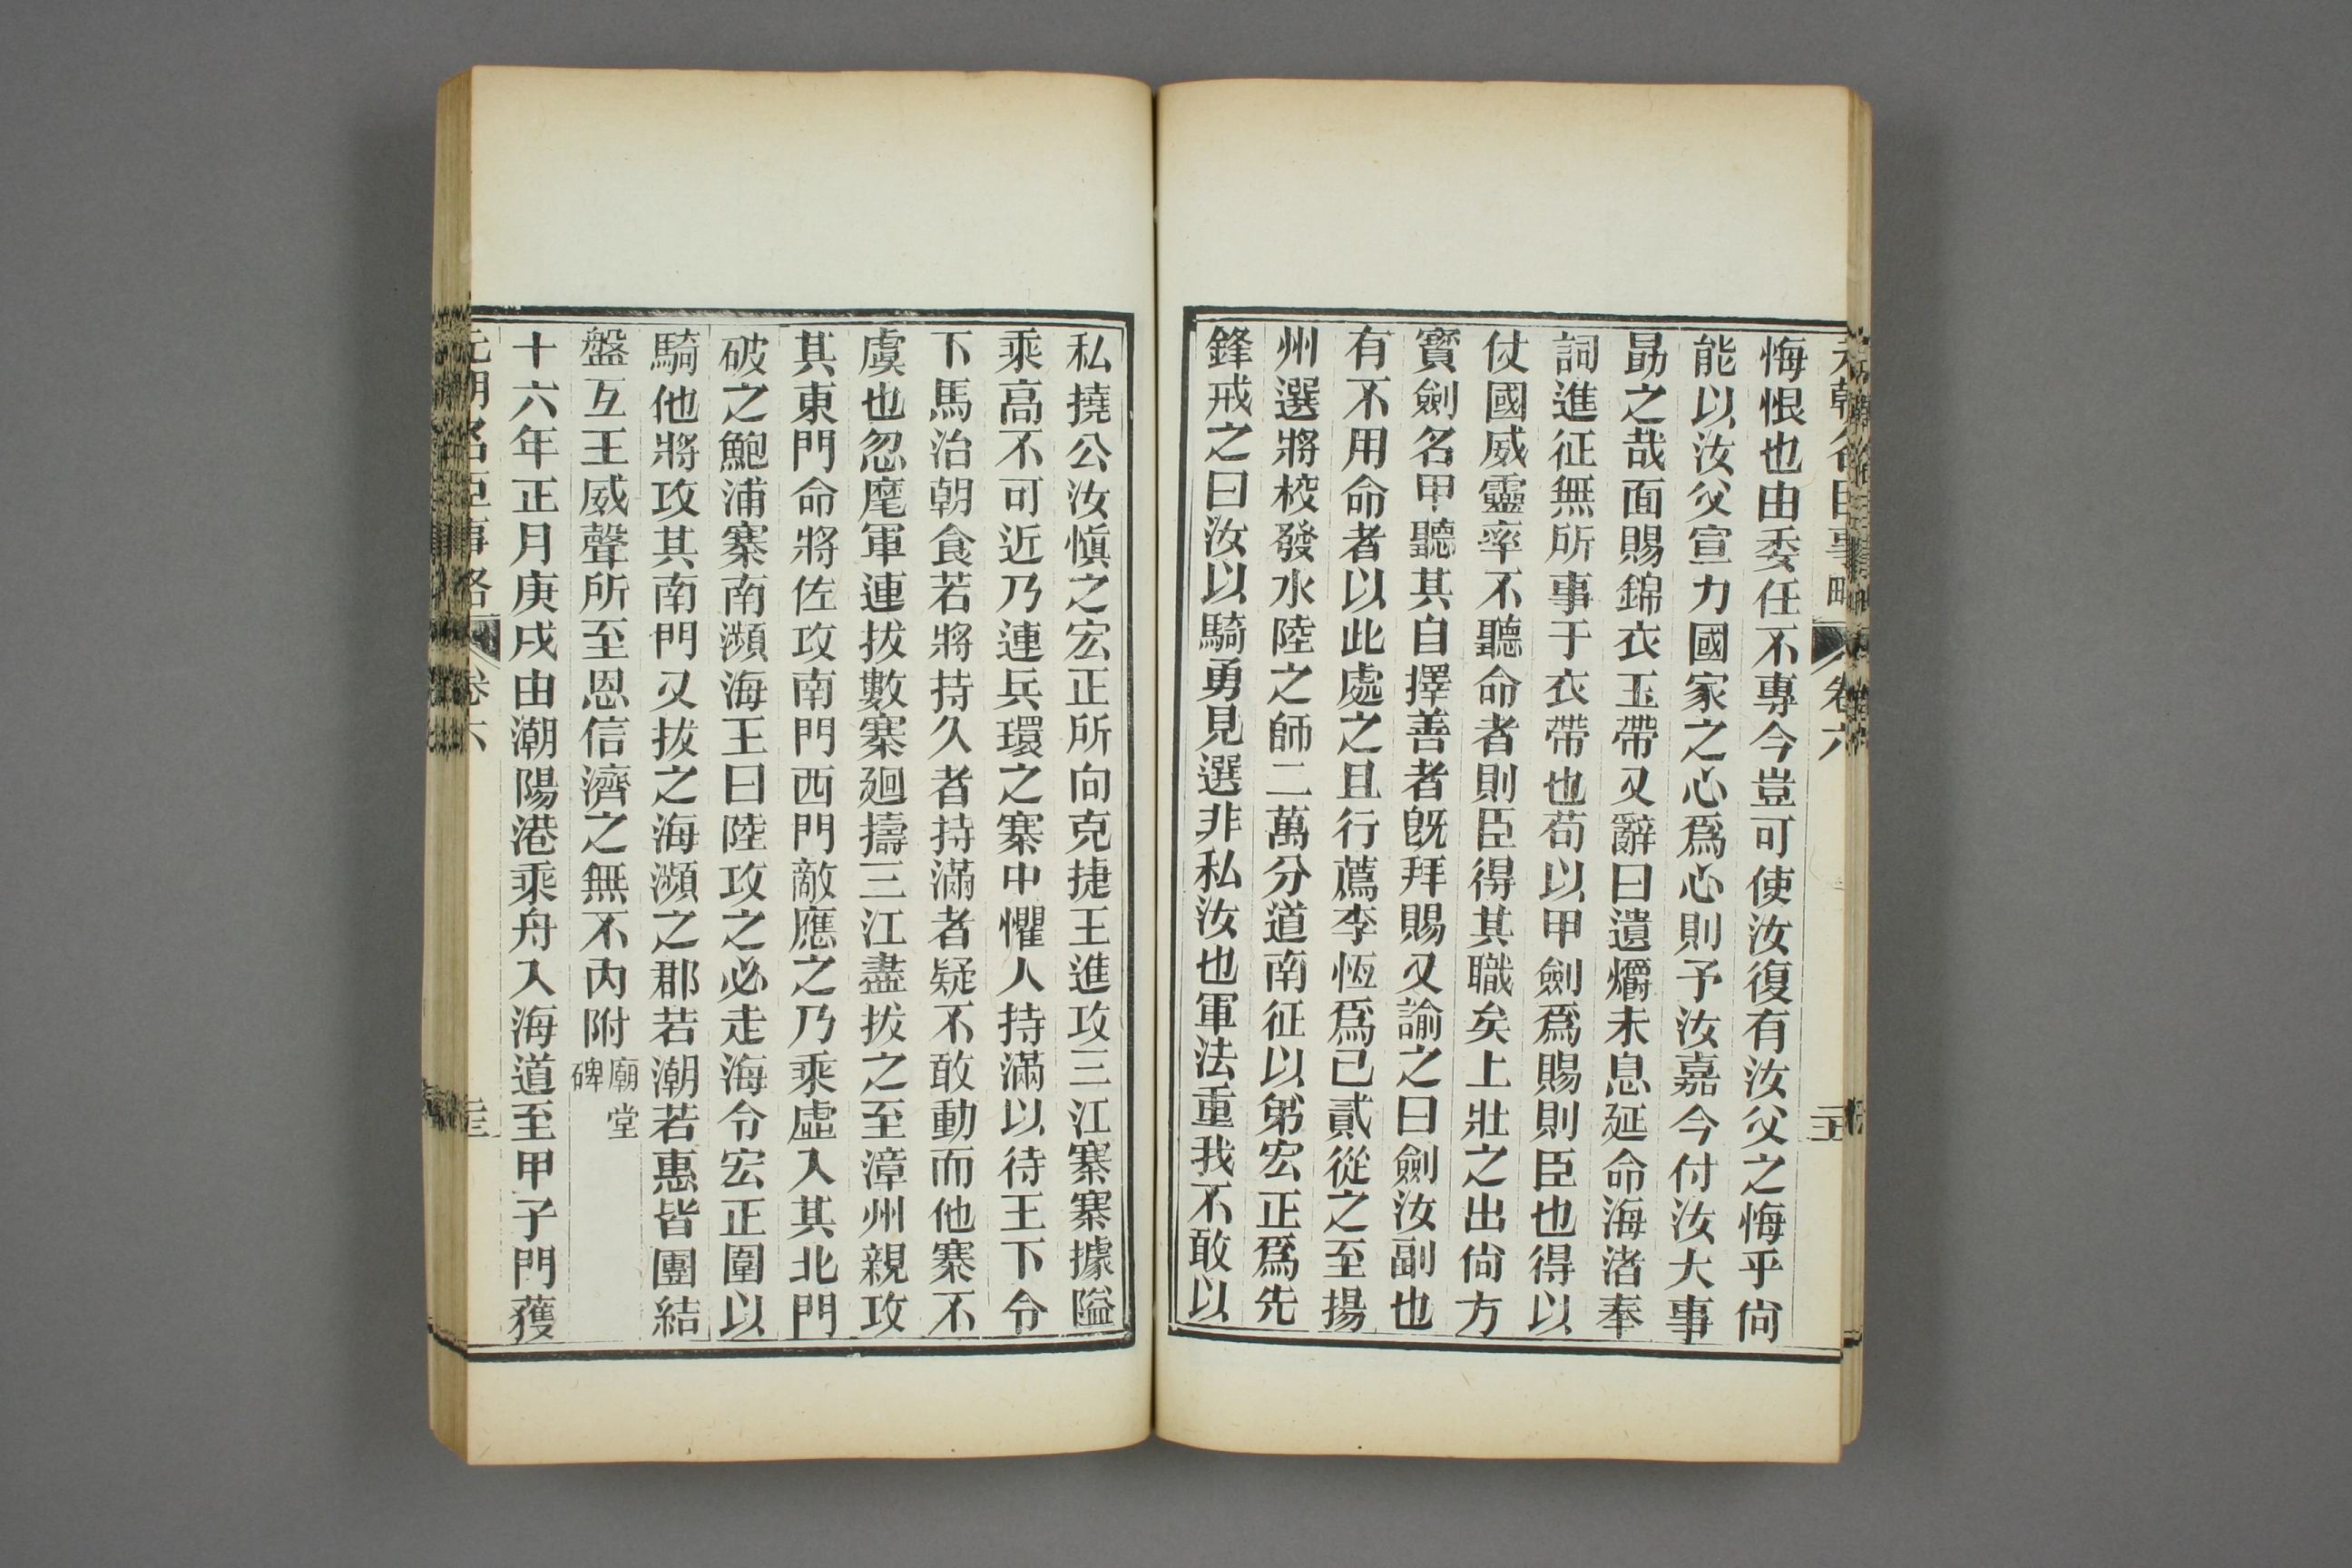 悔恨也由委任不專今豈可使汝復有汝父之悔乎尙
能以汝父宣力國家之心爲心則予汝嘉今付汝大事
勗之哉面賜錦衣玉帶又辭曰遺爝未息延命海渚奉
詞進征無所事于衣帶也苟以甲劍爲賜則臣也得以
仗國威靈率不聽命者則臣得其職矣上壯之出尙方
寳劍名甲聽其自擇善者旣拜賜又諭之曰劍汝副也
有不用命者以此處之且行薦李恆爲已貳從之至揚
州選將校發水陸之師二萬分道南征以弟宏正爲先
鋒戒之曰汝以騎勇見選非私汝也軍法重我不敢以
私撓公汝愼之宏正所向克捷王進攻三江寨寨據隘
乘高不可近乃連兵環之寨中懼人持滿以待王下令
下馬治朝食若將持久者持滿者疑不敢動而他寨不
虞也忽麾軍連拔數寨廻擣三江盡拔之至漳州親攻
其東門命將佐攻南門西門敵應之乃乘虛入其北門
破之鮑浦寨南瀕海王曰陸攻之必走海令宏正圍以
騎他將攻其南門又拔之海瀕之郡若潮若惠皆團結
盤互王威聲所至恩信濟之無不內附廟堂碑
十六年正月庚戌由潮陽港乘舟入海道至甲子門獲
元朝名臣事略 卷六